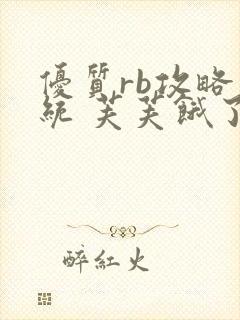 優質rb攻略
統 芙芙餓了
醉紅火